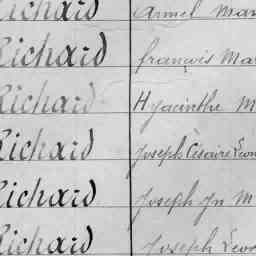 Richard Armel Mar
Richard françois Ma
Richard Hyacinthe M
Richard Joseph Césaire Leon
Richard Joseph Jn M
Richard Joseph Leon